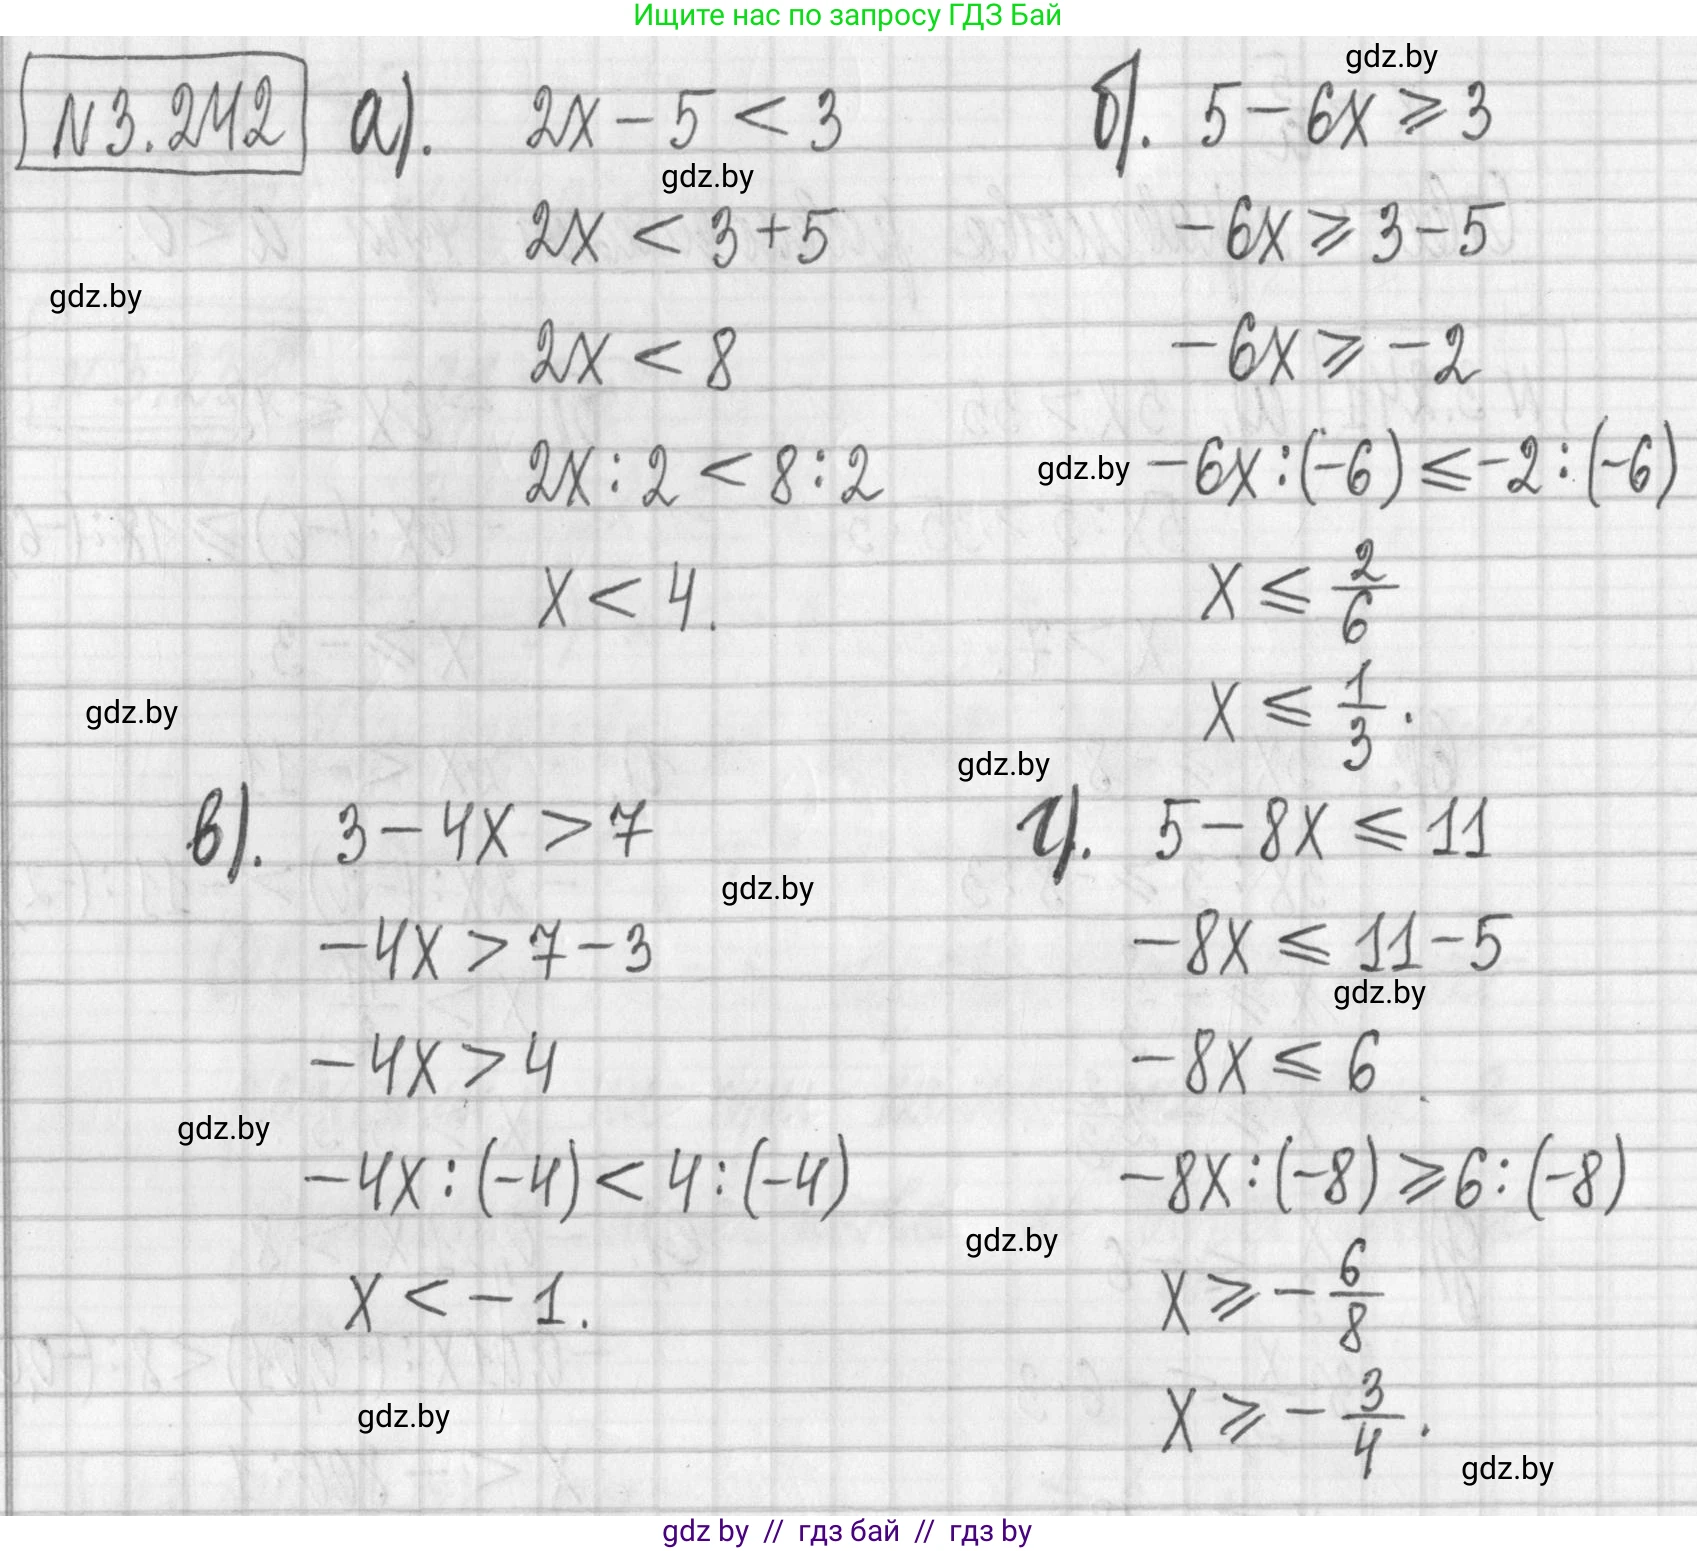 Ищите нас по запросу ГДЗ Бай
gdz.by
N3.242
а).
2x - 5 < 3
gdz.by
2x < 3 + 5
gdz.by
2x < 8
2x : 2 < 8 : 2
x < 4.
gdz.by
б). 5 - 6x ⩾ 3
-6x ⩾ 3 - 5
-6x ⩾ -2
gdz.by
-6x : (-6) ⩽ -2 : (-6)
x ⩽ 2/6
x ⩽ 1/3.
gdz.by
в). 3 - 4x > 7
gdz.by
-4x > 7 - 3
-4x > 4
gdz.by
-4x : (-4) < 4 : (-4)
x < -1.
gdz.by
г). 5 - 8x ⩽ 11
-8x ⩽ 11 - 5
gdz.by
-8x ⩽ 6
-8x : (-8) ⩾ 6 : (-8)
gdz.by
x ⩾ -6/8
x ⩾ -3/4.
gdz.by
gdz by // гдз бай // гдз by